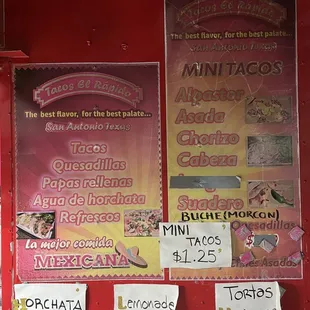 Tacos El Rapido
The best flavor, for the best palate...
San Antonio Texas
Tacos
Quesadillas
Papas rellenas
Agua de horchata
Refrescos
La mejor comida
MEXICANA
Tacos El Rapido
The best flavor, for the best palate...
San Antonio Texas
MINI TACOS
Alpastor
Asada
Chorizo
Cabeza
Suadero
BUCHE (MORCON)
Quesadillas
Asadas
MINI
TACOS
$1.25
HORCHATA
Lemonade
TORTAS